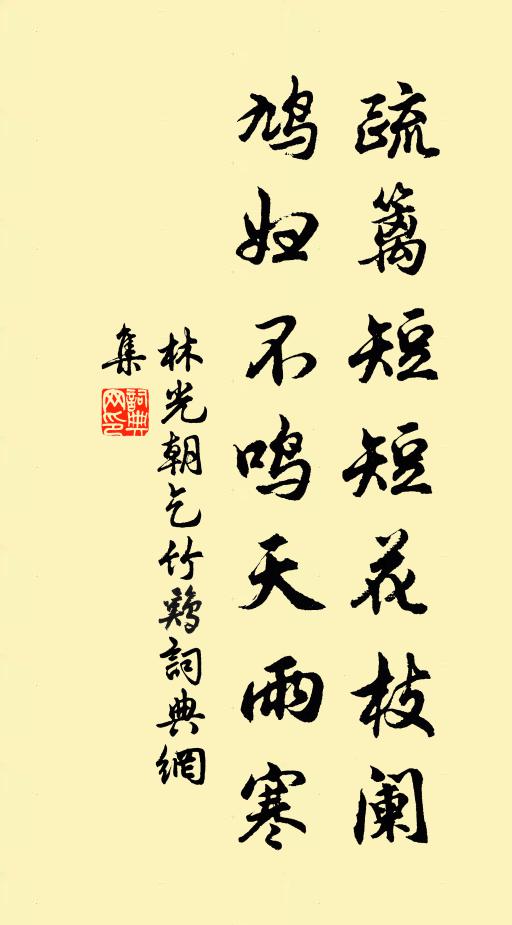 疏篱短短花枝阑
鸠妇不鸣天雨寒
林光朝乞竹鸡詞典網
集
詞典
网印